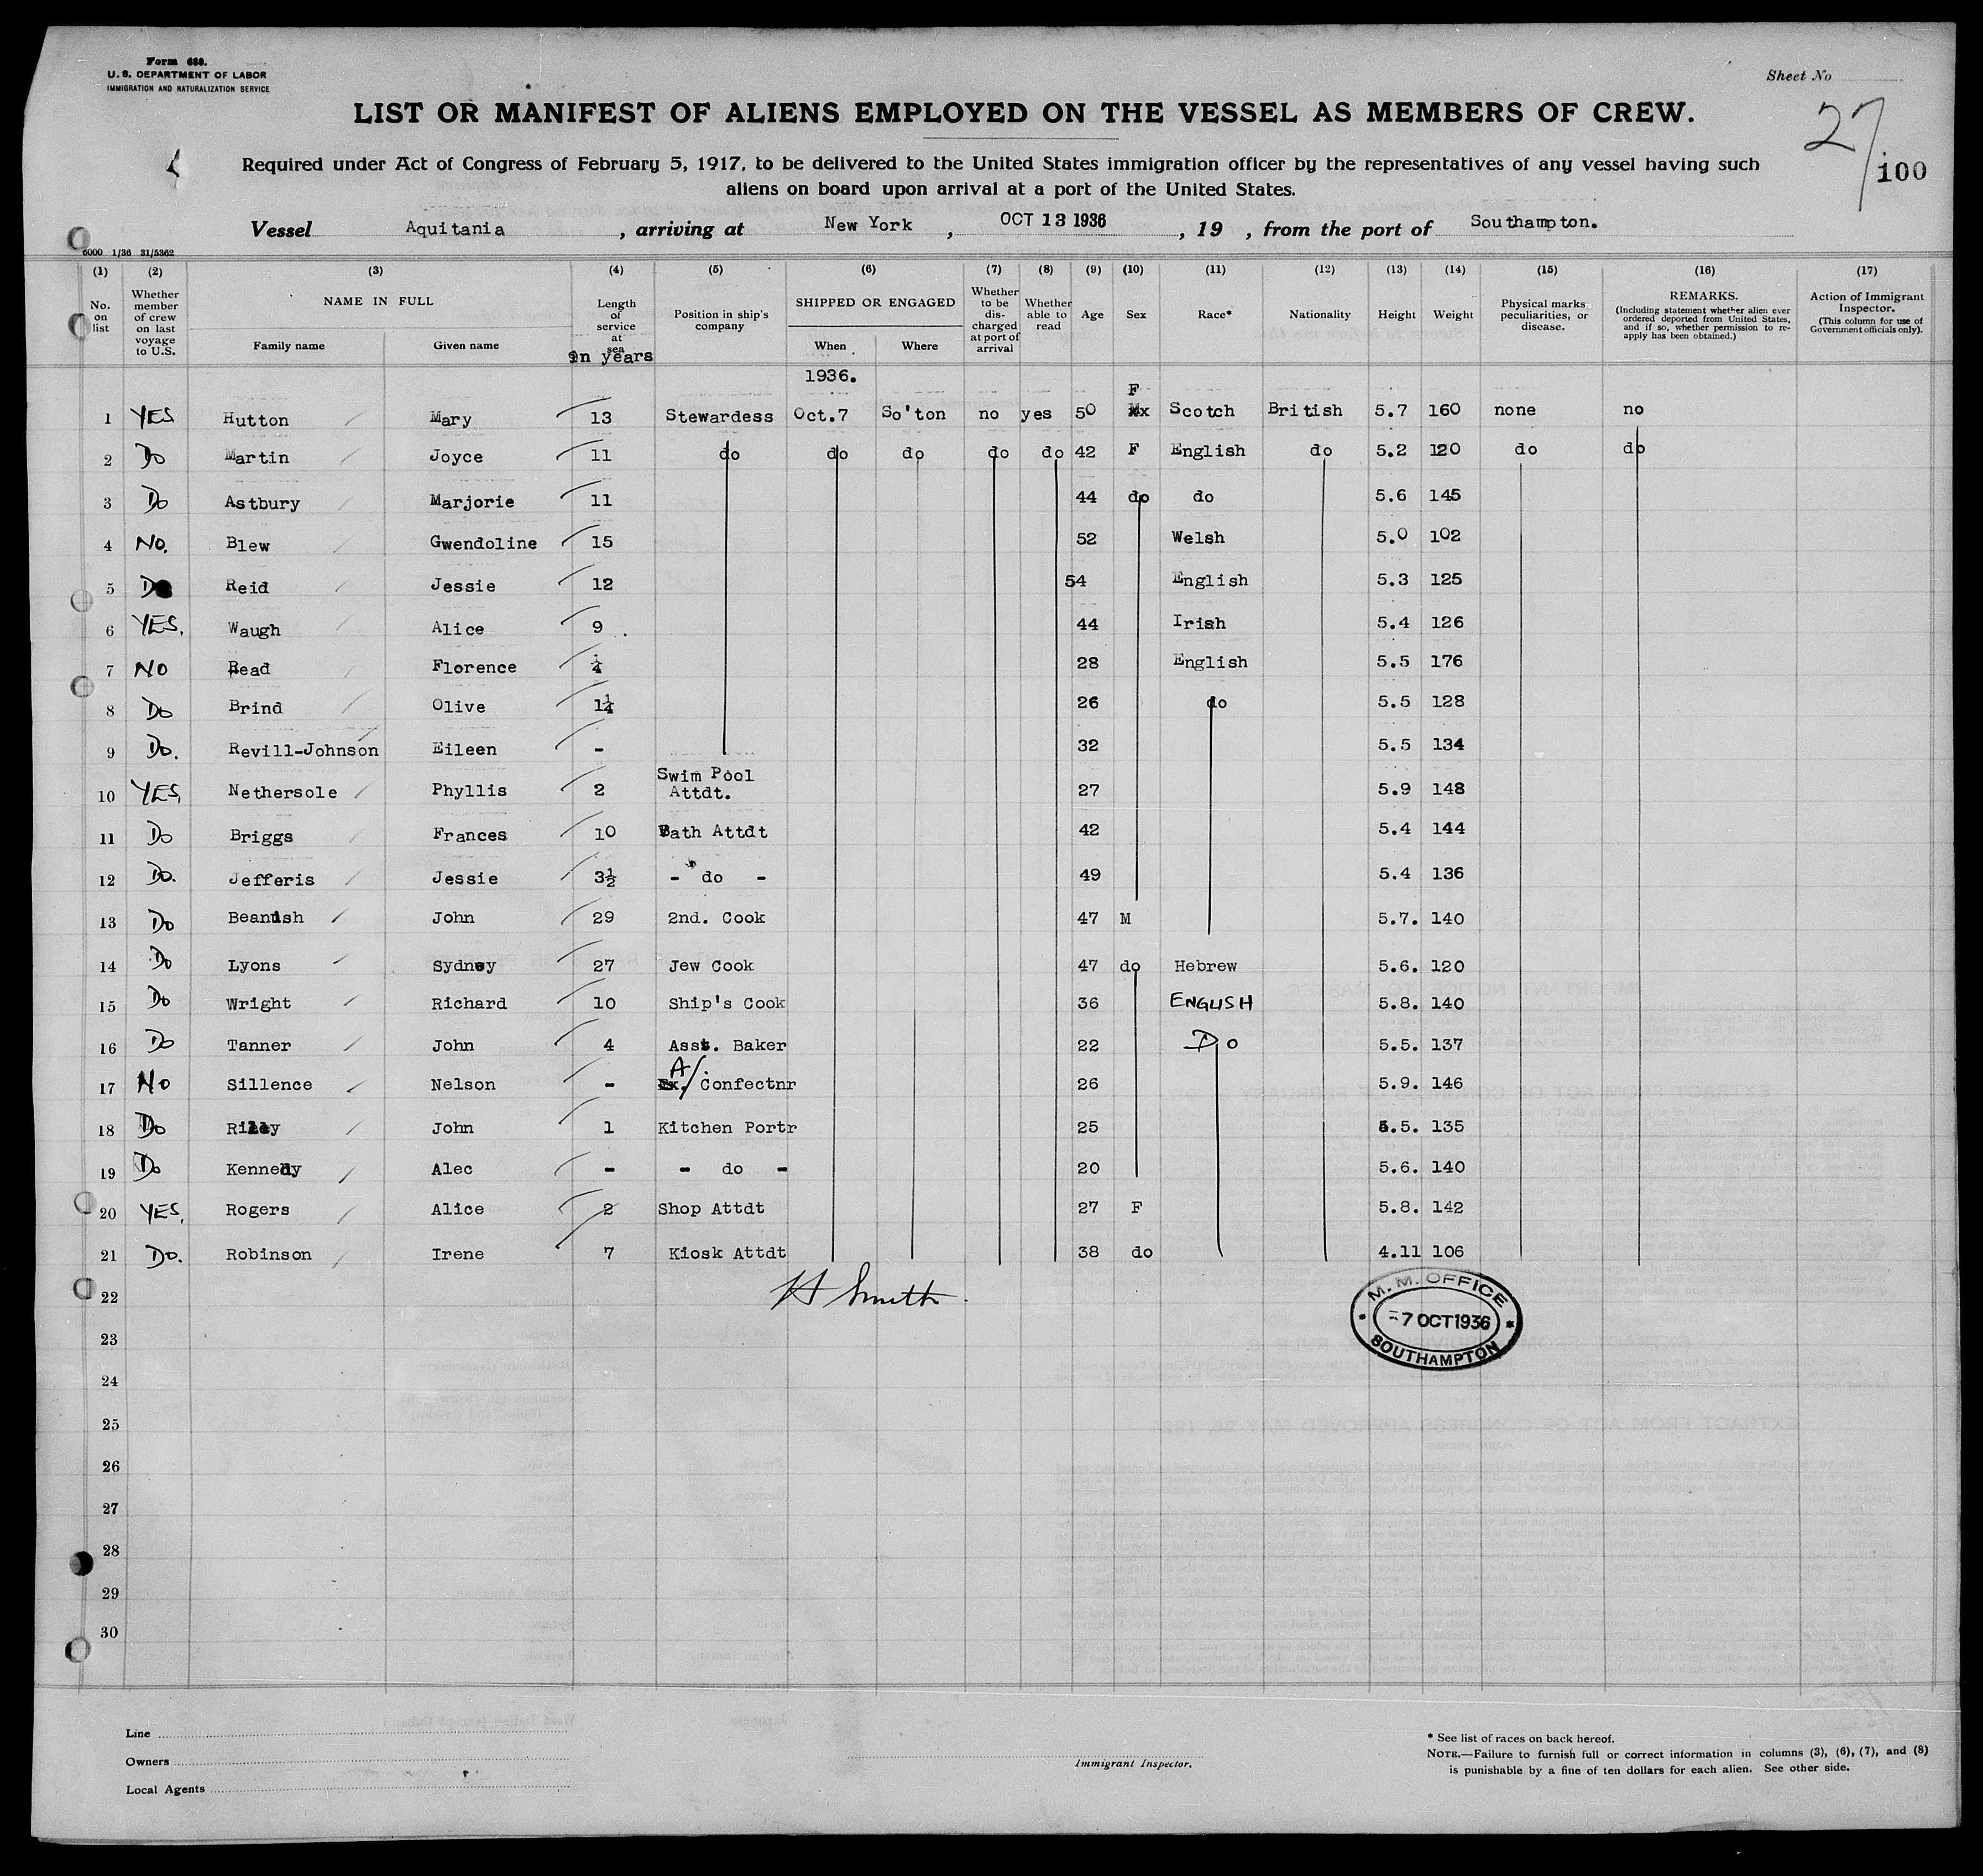 Form 680.
U. S. DEPARTMENT OF LABOR
IMMIGRATION AND NATURALIZATION SERVICE
Sheet No
LIST OR MANIFEST OF ALIENS EMPLOYED ON THE VESSEL AS MEMBERS OF CREW.
27/100
Required under Act of Congress of February 5, 1917, to be delivered to the United States immigration officer by the representatives of any vessel having such
aliens on board upon arrival at a port of the United States.
Vessel Aquitania , arriving at New York , OCT 13 1936 , 19 , from the port of Southampton.
6000 1/36 31/5362
(1) (2) (3) (4) (5) (6) (7) (8) (9) (10) (11) (12) (13) (14) (15) (16) (17)
No. on list
Whether member of crew on last voyage to U.S.
NAME IN FULL
Family name Given name
Length of service at sea
In years
Position in ship's company
SHIPPED OR ENGAGED
When Where
Whether to be discharged at port of arrival
Whether able to read
Age Sex Race* Nationality Height Weight
Physical marks, peculiarities, or disease.
REMARKS.
(Including statement whether alien ever ordered deported from United States, and if so, whether permission to re-apply has been obtained.)
Action of Immigrant Inspector.
(This column for use of Government officials only).
1936.
1 YES Hutton Mary 13 Stewardess Oct.7 So'ton no yes 50 F Scotch British 5.7 160 none no
2 Do Martin Joyce 11 do do do do do 42 F English do 5.2 120 do do
3 Do Astbury Marjorie 11 44 do do 5.6 145
4 NO. Blew Gwendoline 15 52 Welsh 5.0 102
5 Do Reid Jessie 12 54 English 5.3 125
6 YES. Waugh Alice 9 44 Irish 5.4 126
7 NO Read Florence ¼ 28 English 5.5 176
8 Do Brind Olive 1¼ 26 do 5.5 128
9 Do. Revill-Johnson Eileen - 32 5.5 134
10 YES. Nethersole Phyllis 2 Swim Pool Attdt. 27 5.9 148
11 Do Briggs Frances 10 Bath Attdt 42 5.4 144
12 Do. Jefferis Jessie 3½ - do - 49 5.4 136
13 Do Beanish John 29 2nd. Cook 47 M 5.7. 140
14 Do Lyons Sydney 27 Jew Cook 47 do Hebrew 5.6. 120
15 Do Wright Richard 10 Ship's Cook 36 ENGLISH 5.8. 140
16 Do Tanner John 4 Asst. Baker 22 Do 5.5. 137
17 NO Sillence Nelson - A/ Confectnr 26 5.9. 146
18 Do Riley John 1 Kitchen Portr 25 5.5. 135
19 Do Kennedy Alec - - do - 20 5.6. 140
20 YES. Rogers Alice 2 Shop Attdt 27 F 5.8. 142
21 Do. Robinson Irene 7 Kiosk Attdt 38 do 4.11 106
22
H Smith
M. M. OFFICE
-7 OCT 1936
SOUTHAMPTON
23
24
25
26
27
28
29
30
Line
Owners
Local Agents
Immigrant Inspector.
* See list of races on back hereof.
NOTE.—Failure to furnish full or correct information in columns (3), (6), (7), and (8)
is punishable by a fine of ten dollars for each alien. See other side.